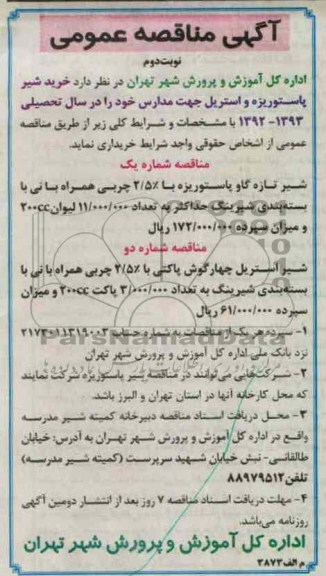 آگهی مناقصه عمومی
نوبت‌دوم
اداره کل آموزش و پرورش شهر تهران در نظر دارد خرید شیر
پاستوریزه و استریل جهت مدارس خود را در سال تحصیلی
۱۳۹۳- ۱۳۹۲ با مشخصات و شرایط کلی زیر از طریق مناقصه
عمومی از اشخاص حقوقی واجد شرایط خریداری نماید.
مناقصه شماره یک
شیر تازه گاو پاستوریزه با ۲/۵٪ چربی همراه با نی با
بسته‌بندی شیرینگ حداکثر به تعداد ۱۱/۰۰۰/۰۰۰ لیوان ۲۰۰cc
و میزان سپرده ۱۷۲/۰۰۰/۰۰۰ ریال
مناقصه شماره دو
شیر استریل چهارگوش پاکتی با ۲/۵٪ چربی همراه با نی با
بسته‌بندی شیرینگ به تعداد ۳/۰۰۰/۰۰۰ پاکت ۲۰۰cc و میزان
سپرده ۶۱/۰۰۰/۰۰۰ ریال
۱- سپرده هر یک از مناقصات به شماره حساب ۲۱۷۳۰۱۱۳۱۹۰۰۳
نزد بانک ملی اداره کل آموزش و پرورش شهر تهران
۲- شرکت‌هایی می‌توانند در مناقصه شیر پاستوریزه شرکت نمایند
که محل کارخانه آنها در استان تهران و البرز باشد.
۳- محل دریافت اسناد مناقصه دبیرخانه کمیته شیر مدرسه
واقع در اداره کل آموزش و پرورش شهر تهران به آدرس: خیابان
طالقانی- نبش خیابان شهید سرپرست (کمیته شیر مدرسه)
تلفن ۸۸۹۷۹۵۱۲
۴- مهلت دریافت اسناد مناقصه ۷ روز بعد از انتشار دومین آگهی
روزنامه می‌باشد.
اداره کل آموزش و پرورش شهر تهران
م الف ۳۸۷۳
ParsNamadData